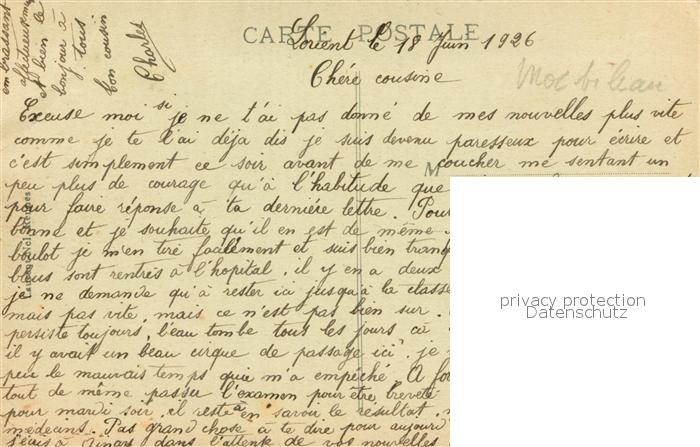 CARTE POSTALE
Lorient le 18 Juin 1926
Morbihan
Chére cousine
Excuse moi si je ne t'ai pas donné de mes nouvelles plus vite
comme je te l'ai déja dis je suis devenu paresseux pour écrire et
c'est simplement ce soir avant de me coucher me sentant un
M
peu plus de courage qu'à l'habitude que
pour faire réponse à ta derniére lettre. Pour
bonne et je souhaite qu'il en est de même
boulot je m'en tire facilement et suis bien tranq
bleus sont rentrés à l'hopital, il y en a deux
je ne demande qu'à rester ici jusqu'a la classe
mais pas vite, mais ce n'est pas bien sur.
persiste toujours, l'eau tombe tous les jours
il y avait un beau cirque de passage ici je
peu le mauvais temps qui m'a empêché. A
tout de même passer l'examon pour être breveté
pour mardi soir, il reste à en savoir le résultat
medecins. Pas grand chose à te dire pour aujourd
dans l'attente de vos nouvelles
en brassant
affectueusement
et bien le
bonjour à
tous
ton cousin
Charles
privacy protection
Datenschutz